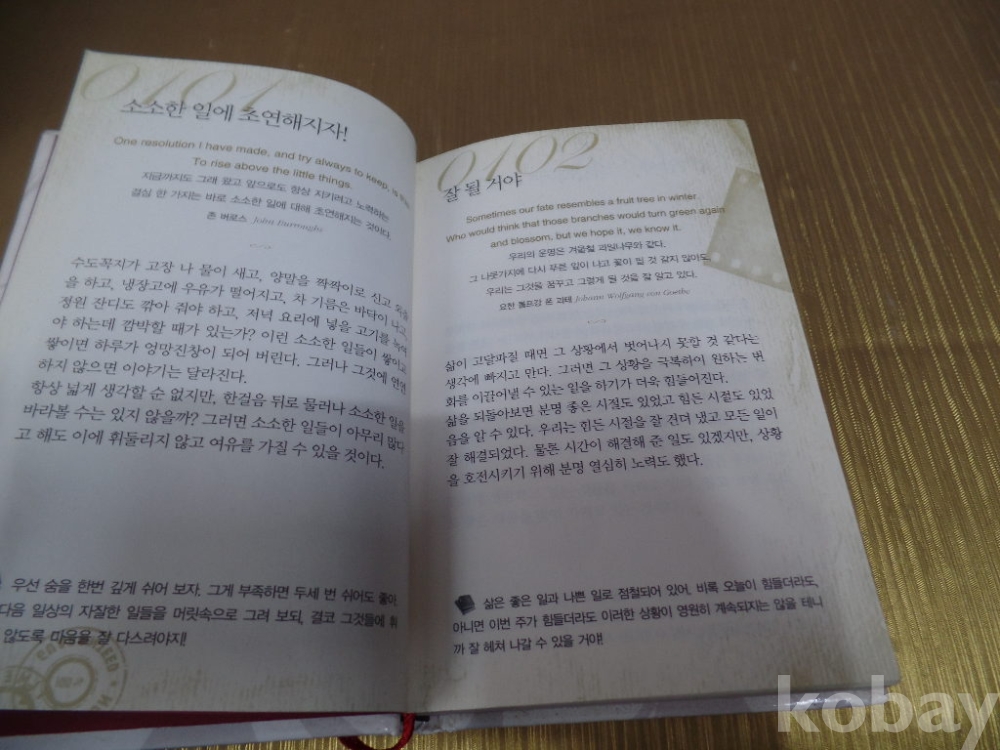 0101
소소한 일에 초연해지자!
One resolution I have made, and try always to keep, is this:
To rise above the little things.
지금까지도 그래 왔고 앞으로도 항상 지키려고 노력하는
결심 한 가지는 바로 소소한 일에 대해 초연해지는 것이다.
존 버로스 John Burroughs
수도꼭지가 고장 나 물이 새고, 양말을 짝짝이로 신고 외출
을 하고, 냉장고에 우유가 떨어지고, 차 기름은 바닥이 나고
정원 잔디도 깎아 줘야 하고, 저녁 요리에 넣을 고기를 녹여
야 하는데 깜박할 때가 있는가? 이런 소소한 일들이 쌓이고
쌓이면 하루가 엉망진창이 되어 버린다. 그러나 그것에 연연
하지 않으면 이야기는 달라진다.
항상 넓게 생각할 순 없지만, 한걸음 뒤로 물러나 소소한 일을
바라볼 수는 있지 않을까? 그러면 소소한 일들이 아무리 많다
고 해도 이에 휘둘리지 않고 여유를 가질 수 있을 것이다.
우선 숨을 한번 깊게 쉬어 보자. 그게 부족하면 두세 번 쉬어도 좋아.
다음 일상의 자잘한 일들을 머릿속으로 그려 보되, 결코 그것들에 휘
않도록 마음을 잘 다스려야지!
0102
잘 될 거야
Sometimes our fate resembles a fruit tree in winter.
Who would think that those branches would turn green again
and blossom, but we hope it, we know it.
우리의 운명은 겨울철 과일나무와 같다.
그 나뭇가지에 다시 푸른 잎이 나고 꽃이 필 것 같지 않아도,
우리는 그것을 꿈꾸고 그렇게 될 것을 잘 알고 있다.
요한 볼프강 폰 괴테 Johann Wolfgang von Goethe
삶이 고달파질 때면 그 상황에서 벗어나지 못할 것 같다는
생각에 빠지고 만다. 그러면 그 상황을 극복하여 원하는 변
화를 이끌어낼 수 있는 일을 하기가 더욱 힘들어진다.
삶을 되돌아보면 분명 좋은 시절도 있었고 힘든 시절도 있었
음을 알 수 있다. 우리는 힘든 시절을 잘 견뎌 냈고 모든 일이
잘 해결되었다. 물론 시간이 해결해 준 일도 있겠지만, 상황
을 호전시키기 위해 분명 열심히 노력도 했다.
삶은 좋은 일과 나쁜 일로 점철되어 있어. 비록 오늘이 힘들더라도,
아니면 이번 주가 힘들더라도 이러한 상황이 영원히 계속되지는 않을 테니
까 잘 헤쳐 나갈 수 있을 거야!
kobay